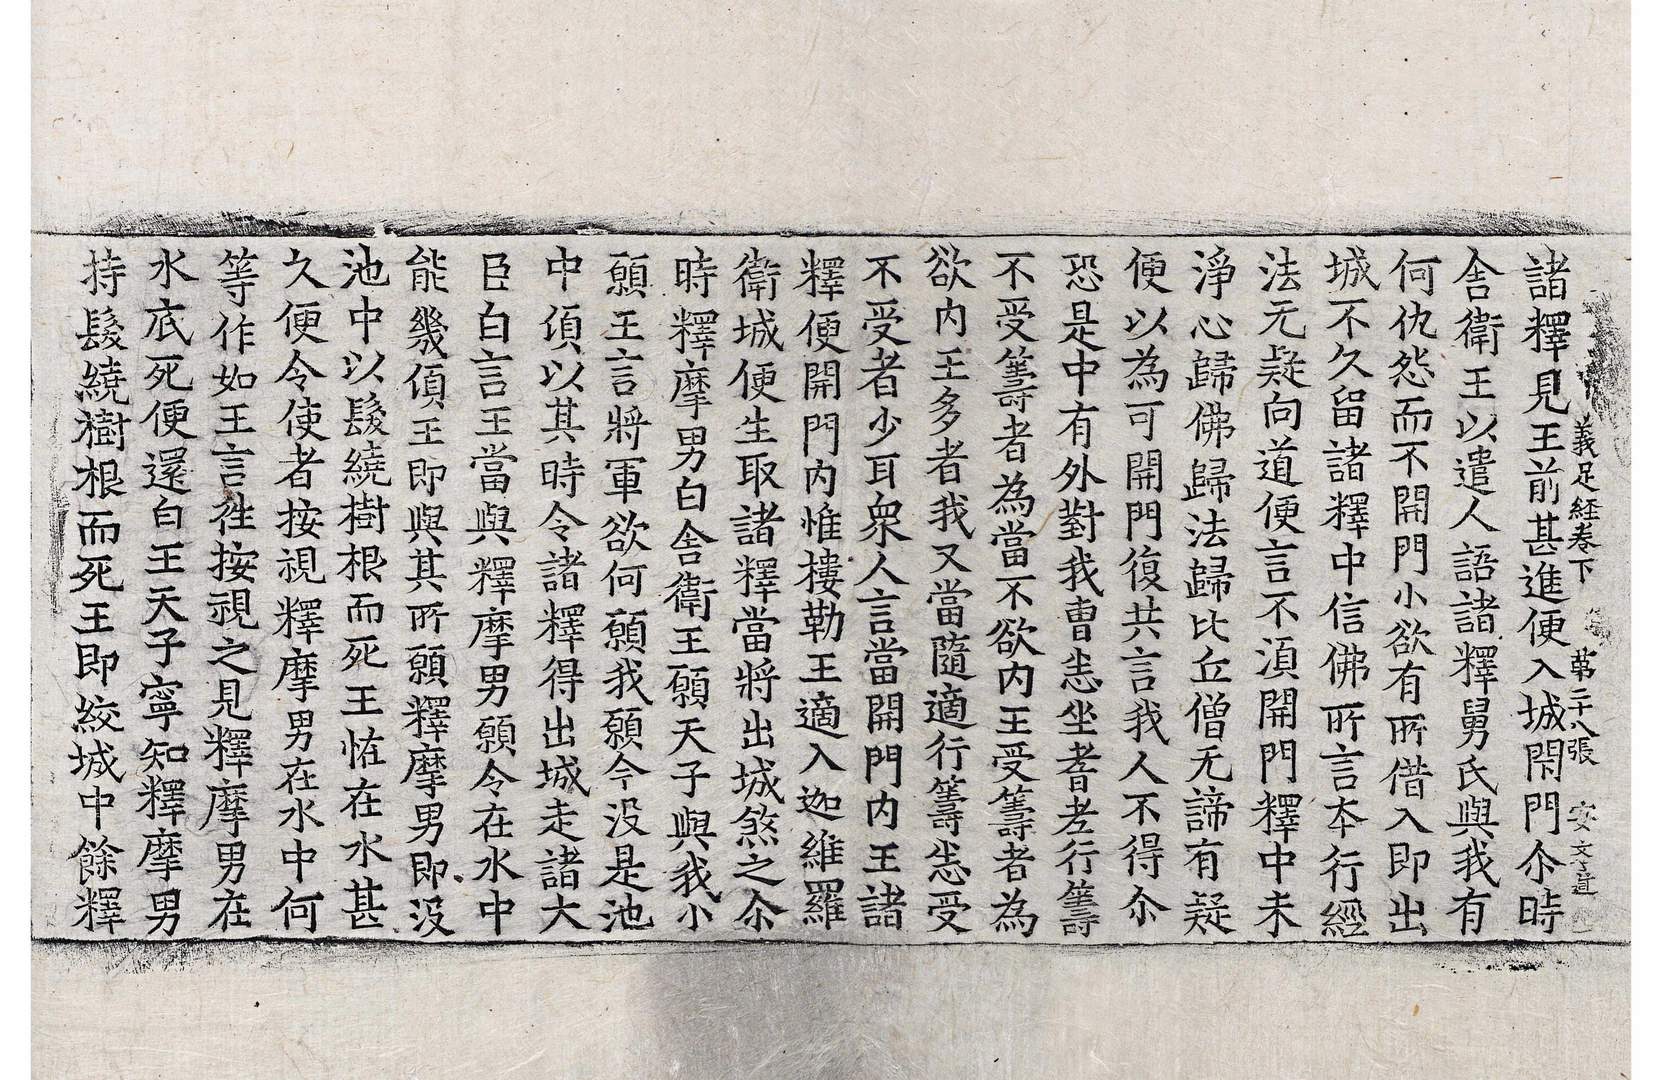 義足經卷下 苐二十八張 安文道
諸釋見王前甚進便入城閇門尒時
舎衛王以遣人語諸釋舅氏與我有
何仇怨而不開門小欲有所借入即出
城不久留諸釋中信佛所言夲行經
法无疑向道便言不湏開門釋中未
淨心歸佛歸法歸比丘僧无諦有疑
便以為可開門復共言我人不得尒
恐是中有外對我曹恙坐耆老行籌
不受籌者為當不欲內王受籌者為
欲內王多者我又當隨適行籌恙受
不受者少耳衆人言當開門內王諸
釋便開門內惟樓勒王適入迦維羅
衛城便生取諸釋當將出城煞之尒
時釋摩男白舎衛王願天子與我小
願王言將軍欲何願我願今没是池
中湏以其時令諸釋得出城走諸大
臣白言王當與釋摩男願令在水中
能幾湏王即與其所願釋摩男即没
池中以髮繞樹根而死王恠在水甚
久便令使者按視釋摩男在水中何
等作如王言徃按視之見釋摩男在
水底死便還白王天子寧知釋摩男
持髮繞樹根而死王即絞城中餘釋